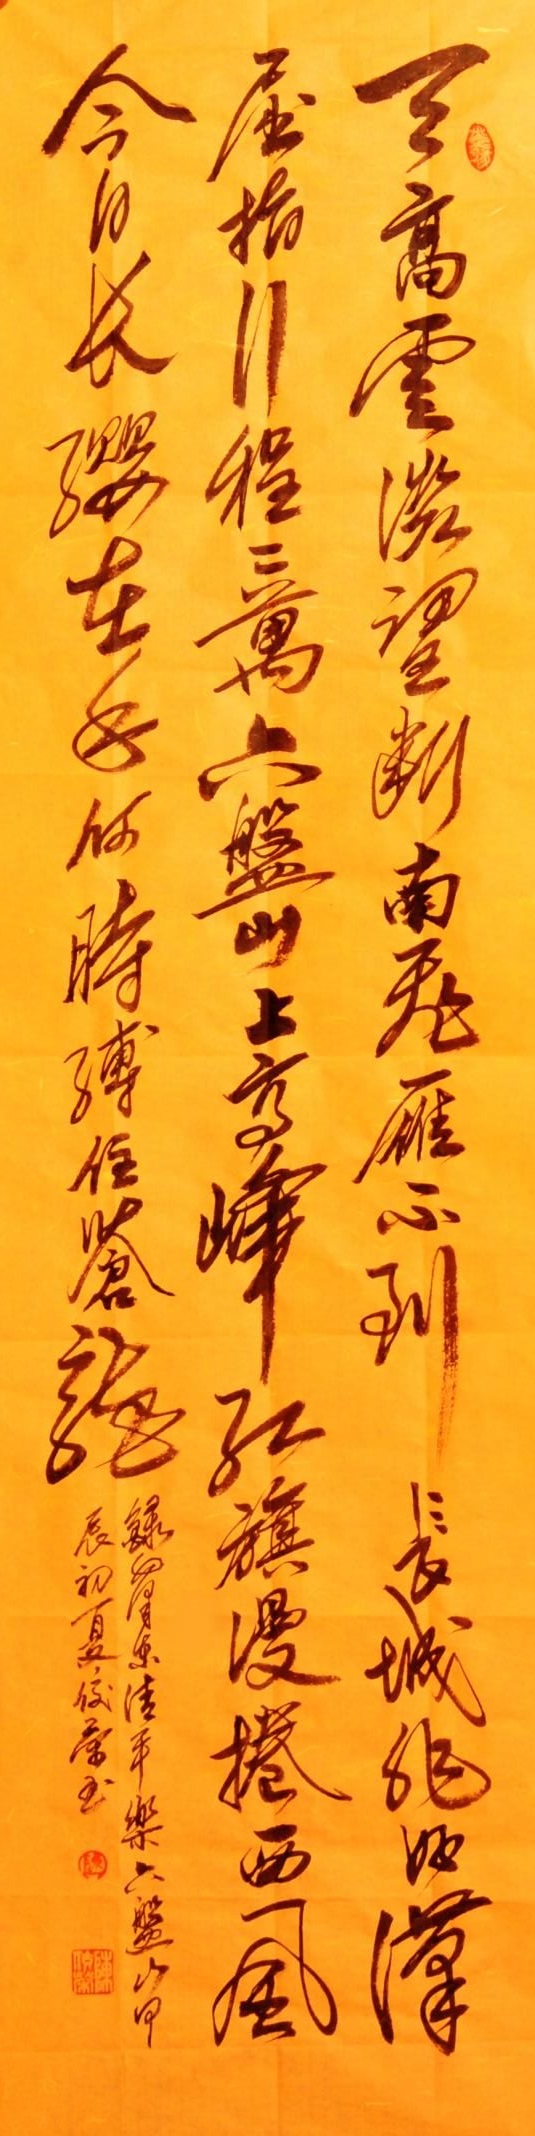 天高雲淡望断南飛雁不到長城非好漢
屈指行程二萬六盤山上高峰紅旗漫捲西風
今日长纓在手何時縛住蒼龍
錄東清平樂六盤山甲
辰初夏俊榮书